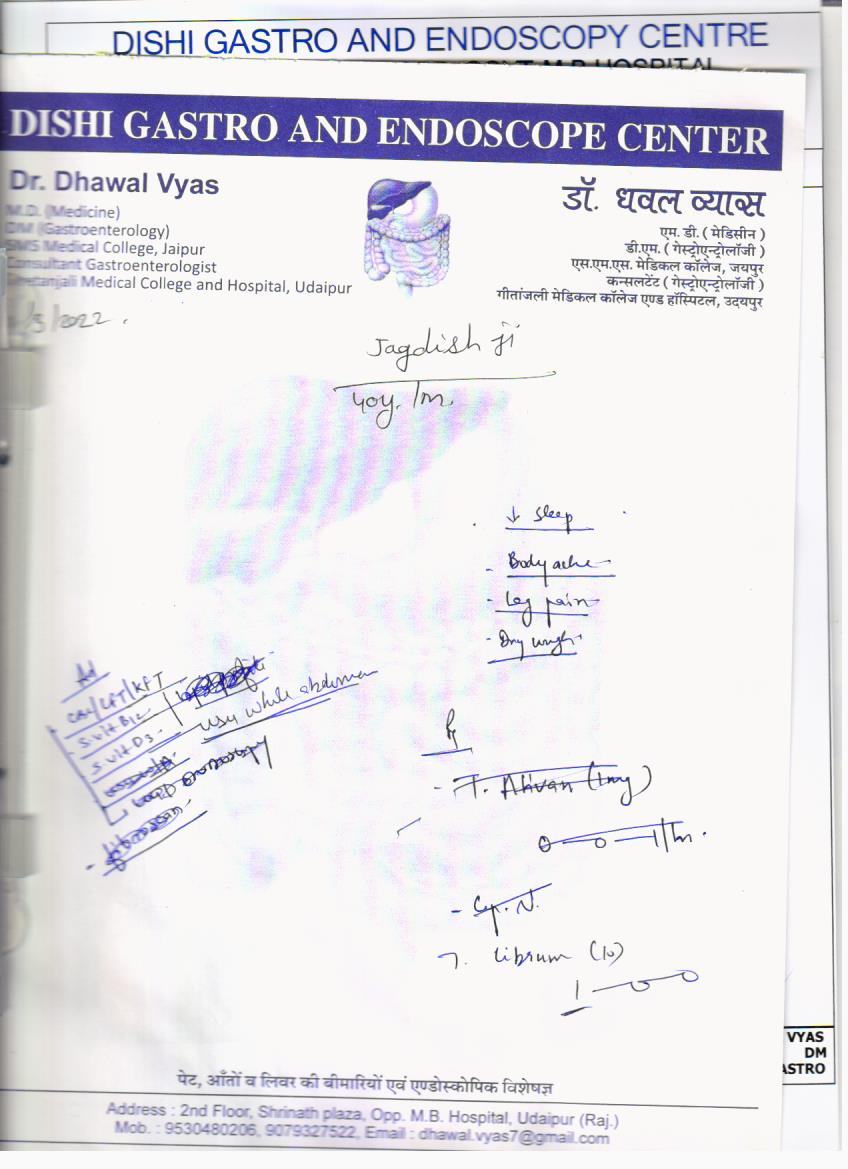 DISHI GASTRO AND ENDOSCOPY CENTRE
M.B HOSPITAL
DISHI GASTRO AND ENDOSCOPE CENTER
Dr. Dhawal Vyas
M.D. (Medicine)
DM (Gastroenterology)
SMS Medical College, Jaipur
Consultant Gastroenterologist
Geetanjali Medical College and Hospital, Udaipur
डॉ. धवल व्यास
एम. डी. ( मेडिसीन )
डी.एम. ( गेस्ट्रोएन्ट्रोलॉजी )
एस.एम.एस. मेडिकल कॉलेज, जयपुर
कन्सलटेंट ( गेस्ट्रोएन्ट्रोलॉजी )
गीतांजली मेडिकल कॉलेज एण्ड हॉस्पिटल, उदयपुर
/5/2022.
Jagdish ji
40y./m.
↓ Sleep
- Body ache
- Leg pain
- Dry cough
Ad
CBC/LFT/KFT
S. vit B12
S. vit D3
USG whole abdomen
endoscopy
fibroscan
Rx
- T. Ativan (1mg)
0-0-1/hs.
- Cap. N.
T. Librium (10)
1-0-0
VYAS
DM
ASTRO
पेट, आँतों व लिवर की बीमारियों एवं एण्डोस्कोपिक विशेषज्ञ
Address : 2nd Floor, Shrinath plaza, Opp. M.B. Hospital, Udaipur (Raj.)
Mob. : 9530480206, 9079327522, Email : dhawal.vyas7@gmail.com